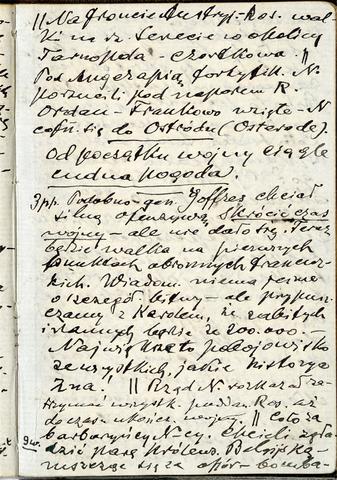 || Na froncie Austryj.-Ros. wal-
ki na rz. Serecie w okolicy
Tarnopola - Czortkowa. ||
Pod Angerapią fortyfik. N.
pod naporem R.
Frankowo wzięte - N
cofn. się do Ostródu (Osterode).
Od początku wojny ciągle
cudna pogoda.
3 pp. Podobno gen. Joffres chciał
silną ofenzywą skrócić czas
wojny - ale nie dało się. Teraz
będzie walka na pierwszych
punktach obronnych francuz-
kich. Wiadom. niema jeszcze
o szczegół. bitwy - ale przypusz-
czamy z Karolem, że zabitych
i rannych będzie ze 200.000. -
Największe to pobojowisko
ze wszystkich, jakie historya
zna! || Rząd N. rozkazał za-
trzymać wszystk. poddan. Ros. aż
do czasu ukończ. wojny || Co to za
9 w. barbarzyńcy N-cy. Chcieli zgła-
dzić parę królews. Belgijską -
mszcząc się za opór - bomba-